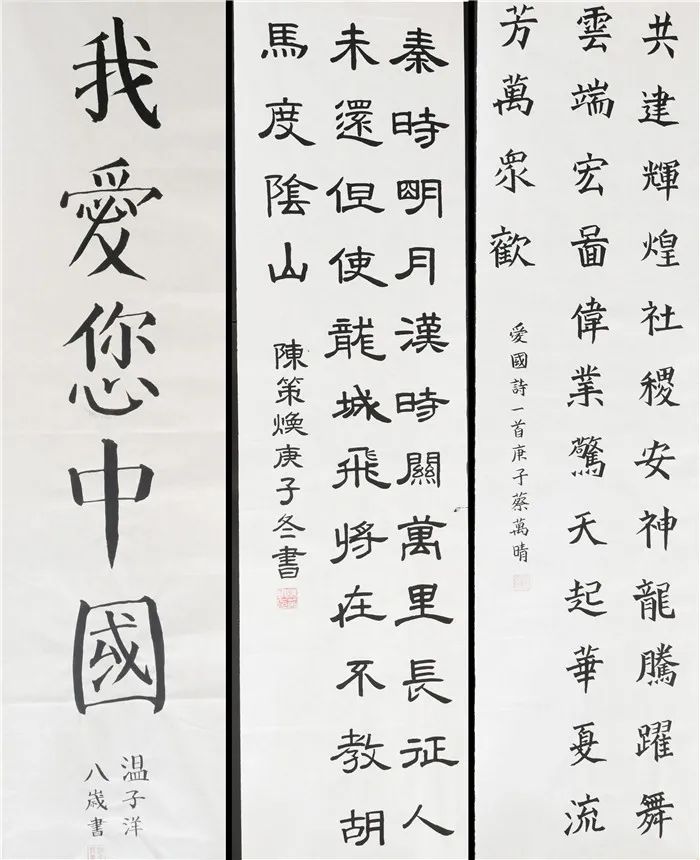 共建輝煌社稷安神龍騰躍舞
雲端宏啚偉業驚天起華夏流
芳萬衆歡
愛國詩一首庚子蔡萬晴
秦時明月漢時關萬里長征人
未還但使龍城飛將在不教胡
馬度陰山
陳策煥庚子冬書
我愛您中國
温子洋
八歲書